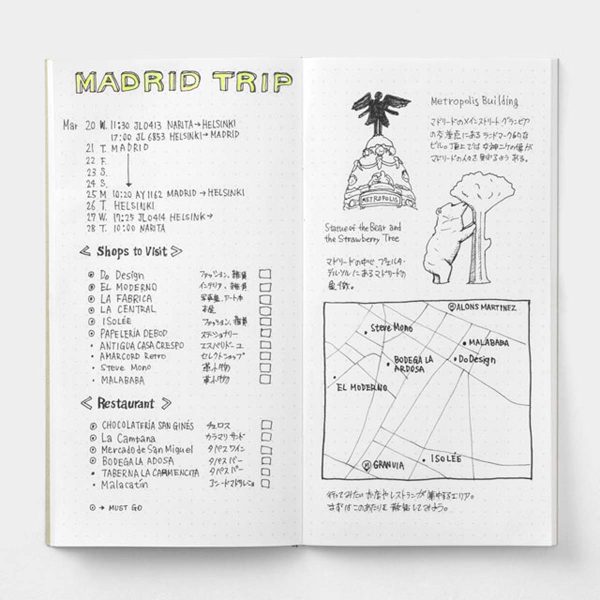 MADRID TRIP
Mar 20 W. 11:30 JL0413 NARITA→HELSINKI
17:00 JL 6853 HELSINKI→MADRID
21 T. MADRID
22 F.
23 S.
24 S.
25 M 10:20 AY1162 MADRID→HELSINKI
26 T HELSINKI
27 W. 17:25 JL0414 HELSINK→
28 T. 10:00 NARITA
≪ Shops to Visit ≫
Do Design ファッション、雑貨
EL MODERNO インテリア、雑貨
LA FABRICA 写真集、アート本
LA CENTRAL 本屋
ISOLÉE ファッション、雑貨
PAPELERÍA DEBOD ステーショナリー
ANTIGUA CASA CRESPO エスパドリーユ
AMARCORD Retro セレクトショップ
Steve Mono 革小物
MALABABA 革小物
≪ Restaurant ≫
CHOCOLATERÍA SAN GINÉS チュロス
La Campana カラマリサンド
Mercado de San Miguel タパス ワイン
BODEGA LA ADOSA タパス バー
TABERNA LA CARMENCITA タパス バー
Malacatín
⊙ → MUST GO
Metropolis Building
マドリードのメインストリート グランビア
の交差点にあるランドマーク的な
ビル。頂上では女神ニケの像が
マドリードの人々を
METROPOLIS
Statue of the Bear and
the Strawberry Tree
マドリードの中心、プエルタ・
デル・ソルにあるマドリードの
象徴。
ALONS MARTINEZ
Steve Mono
MALABABA
BODEGA LA
ARDOSA
Do Design
EL MODERNO
ISOLÉE
GRANVIA
行ってみたいお店やレストランが集中するエリア。
まずはこのあたりを散策してみよう。